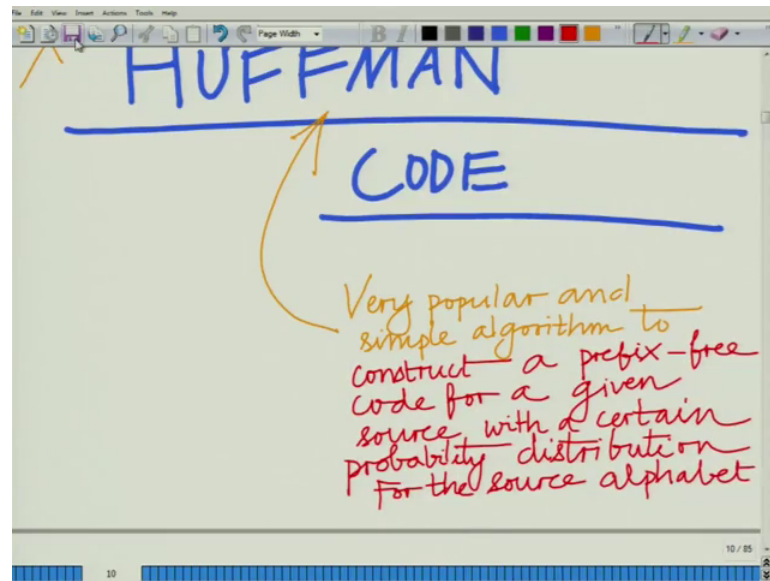 File Edit View Insert Actions Tools Help
Page Width
B I
HUFFMAN
CODE
Very popular and
simple algorithm to
construct a prefix-free
code for a given
source with a certain
probability distribution
for the source alphabet
10 / 85
10